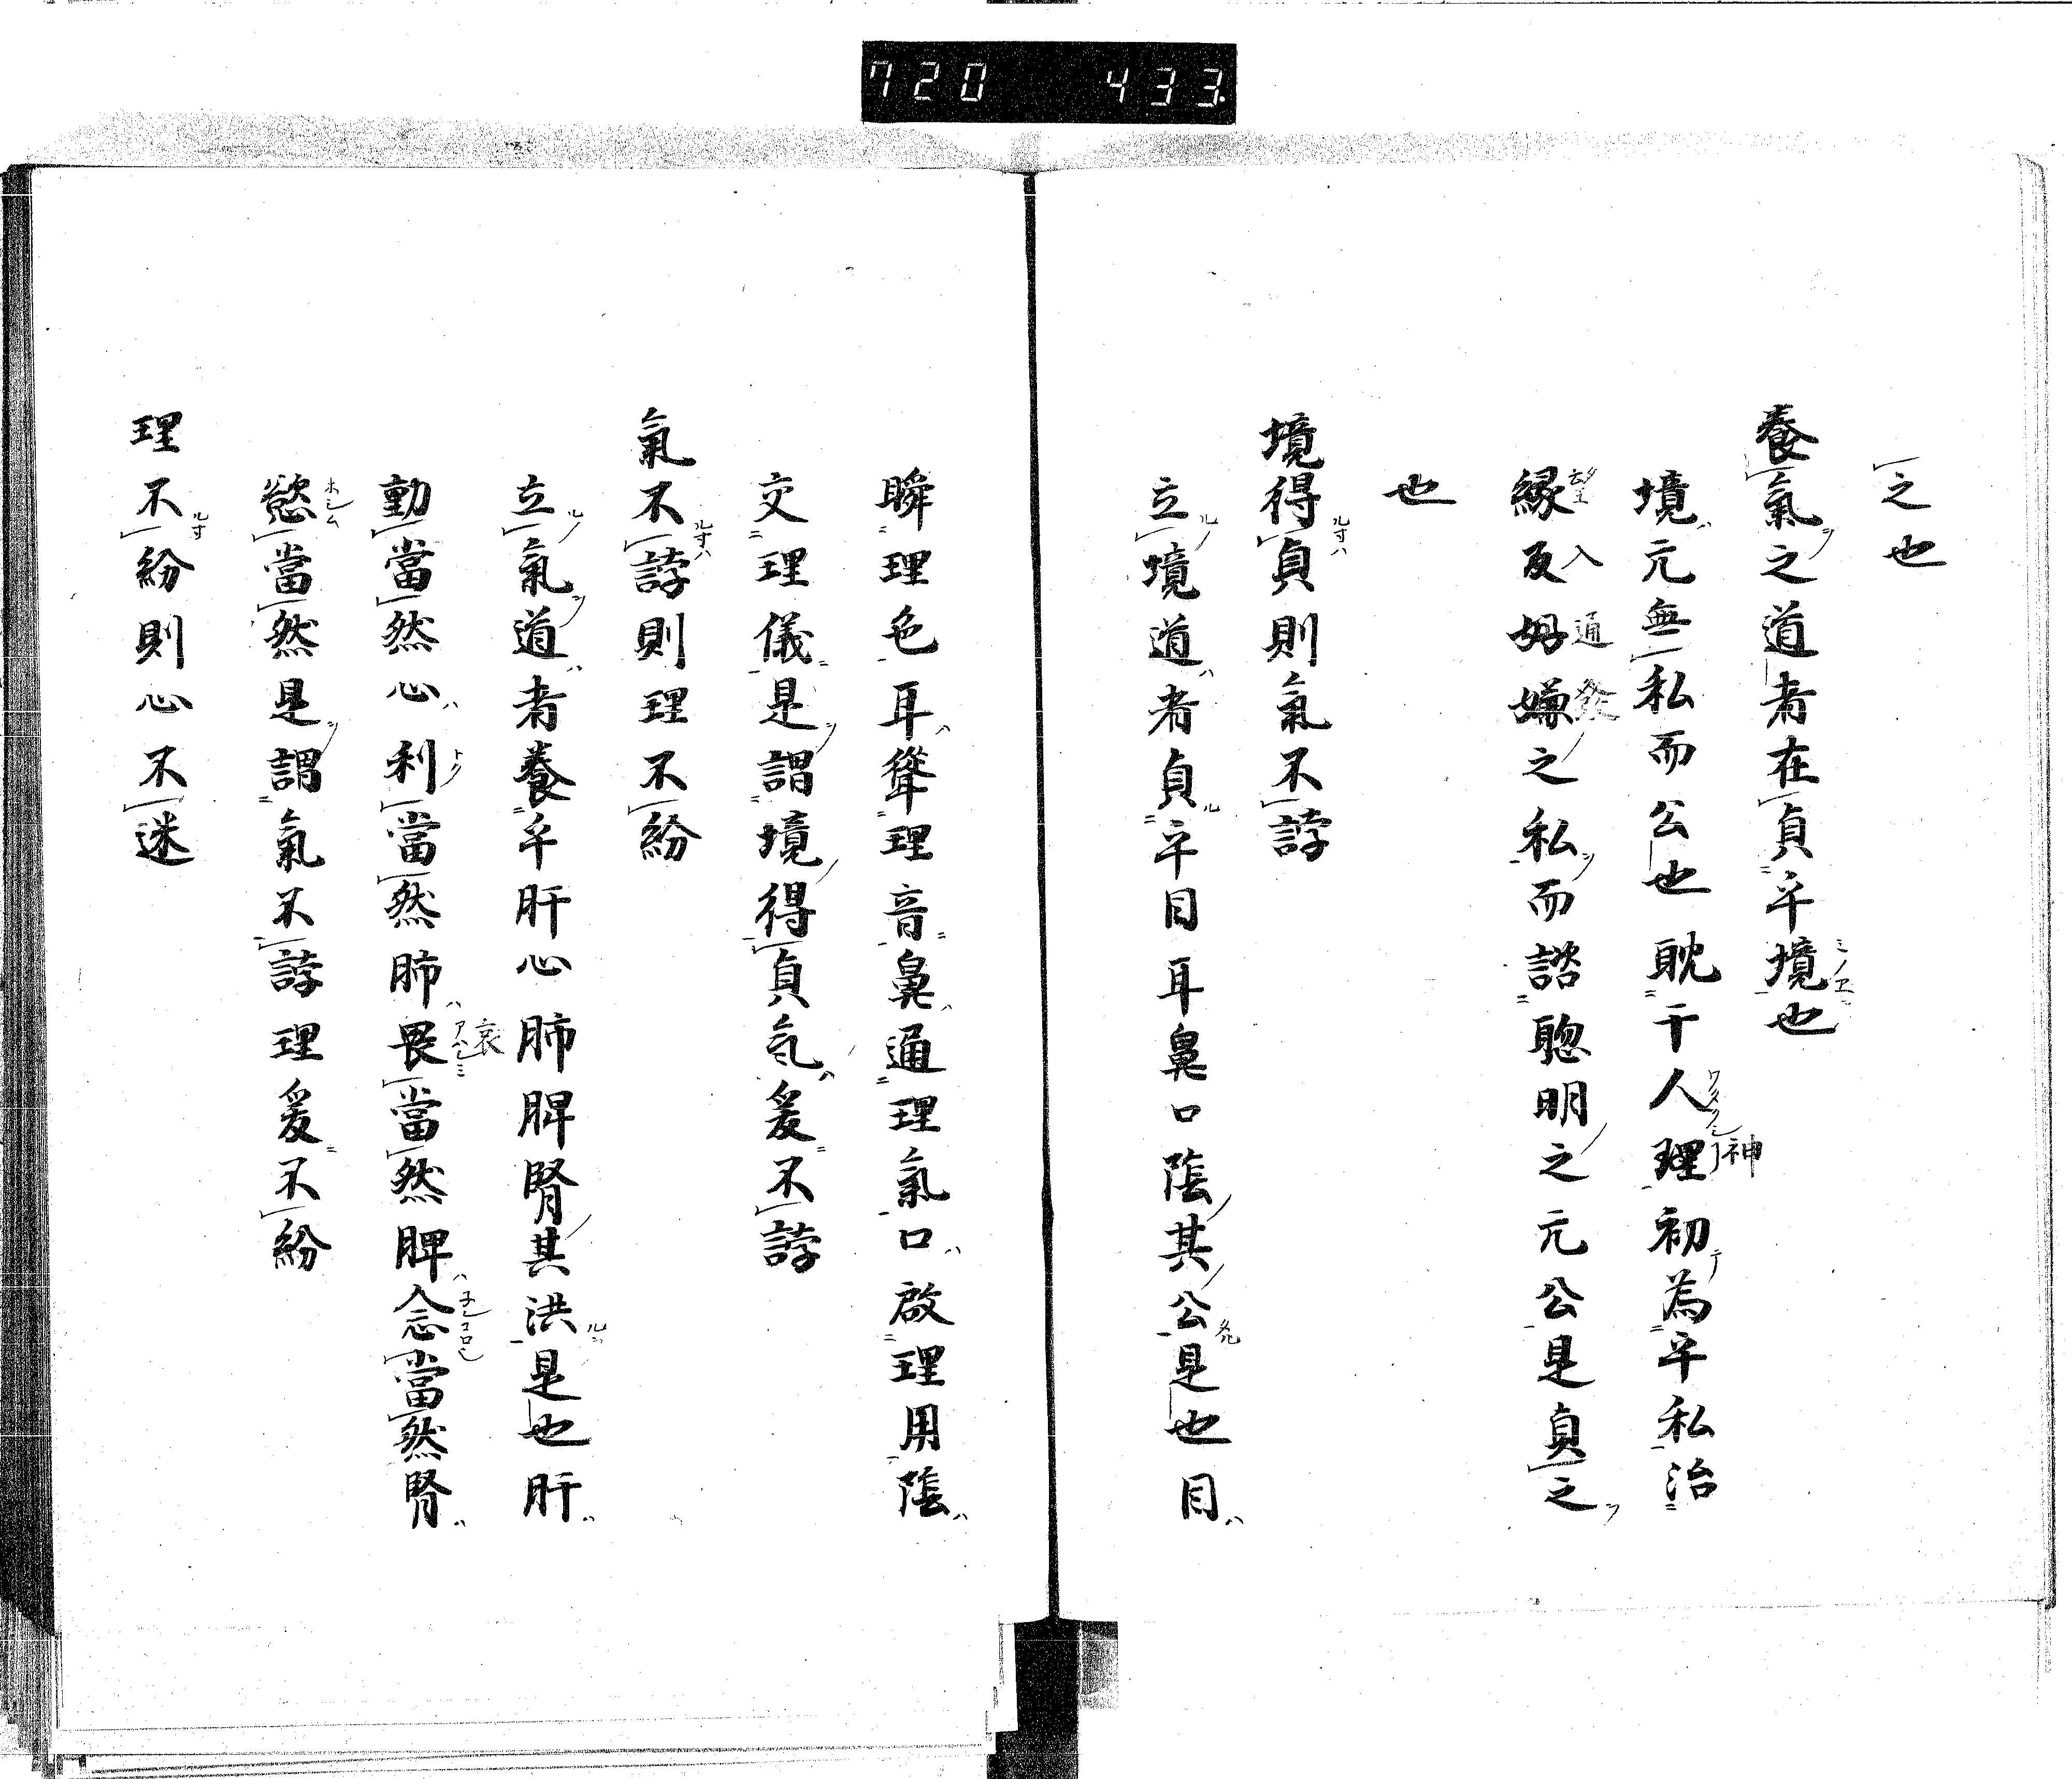 720 433
之也
養氣之道者在貞乎境也
境元無私而公也耽于人理初為乎私治
縁反好嫌之私而諮聰明之元公是貞之
也
境得貞則氣不誖
立境道者貞乎目耳鼻口陰其公是也目
瞬理色耳聳理音鼻通理氣口啟理用陰
交理儀是謂境得貞氣爰不誖
氣不誖則理不紛
立氣道者養乎肝心肺脾腎其洪是也肝
動當然心利當然肺畏當然脾念當然腎
慾當然是謂氣不誖理爰不紛
理不紛則心不迷